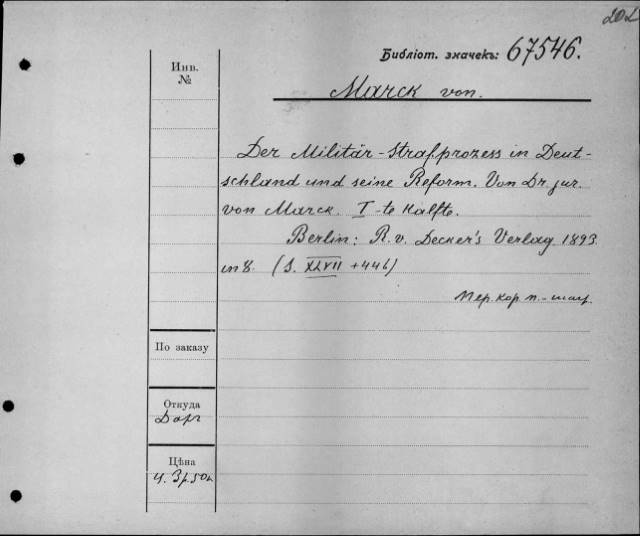 202
Библіот. значекъ: 67546.
Инв.
№
Marck von.
Der Militär-Strafprozess in Deut-
schland und seine Reform. Von Dr. jur.
von Marck. I-te Hälfte.
Berlin: R. v. Decker's Verlag 1893.
in 8. (S. XLVII + 446)
пер. кор. п.-шагр.
По заказу
Откуда
Цѣна
ц. 3р. 50к